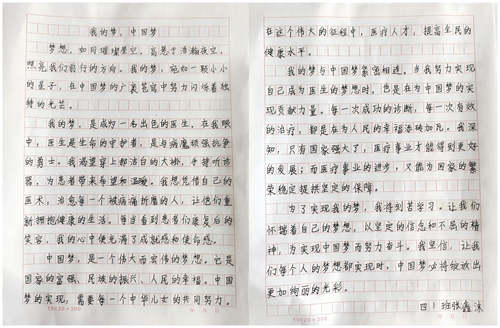 我的梦，中国梦
梦想，如同璀璨星空，高悬于浩瀚夜空，
照亮我们前行的方向。我的梦，宛如一颗小小
的星子，在中国梦的广袤苍穹中努力闪烁着独
特的光芒。
我的梦，是成为一名出色的医生。在我眼
中，医生是生命的守护者，是与病魔顽强抗争
的勇士。我渴望穿上那洁白的大褂，手持听诊
器，为患者带来希望和温暖。我想凭借自己的
医术，治愈每一个被病痛折磨的人，让他们重
新拥抱健康的生活。每当看到患者们康复后的
笑容，我的心中便充满了成就感和使命感。
中国梦，是一个伟大而宏伟的梦想。它是
国家的富强、民族的振兴、人民的幸福。中国
梦的实现，需要每一个中华儿女的共同努力。
15×20=300
年 月 日
在这个伟大的征程中，医疗人才，提高全民的
健康水平。
我的梦与中国梦紧密相连。当我努力实现
自己成为医生的梦想时，也是在为中国梦的实
现贡献力量。每一次成功的诊断，每一次有效
的治疗，都是在为人民的幸福添砖加瓦。我深
知，只有国家强大了，医疗事业才能得到更好
的发展；而医疗事业的进步，又能为国家的繁
荣稳定提供坚定的保障。
为了实现我的梦，我将刻苦学习。让我们
怀揣着自己的梦想，以坚定的信念和不屈的精
神，为实现中国梦而努力奋斗。我坚信，让我
们每个人的梦想都实现时，中国梦必将绽放出
更加绚丽的光彩。
四1班张鑫沫
15×20=300
年 月 日